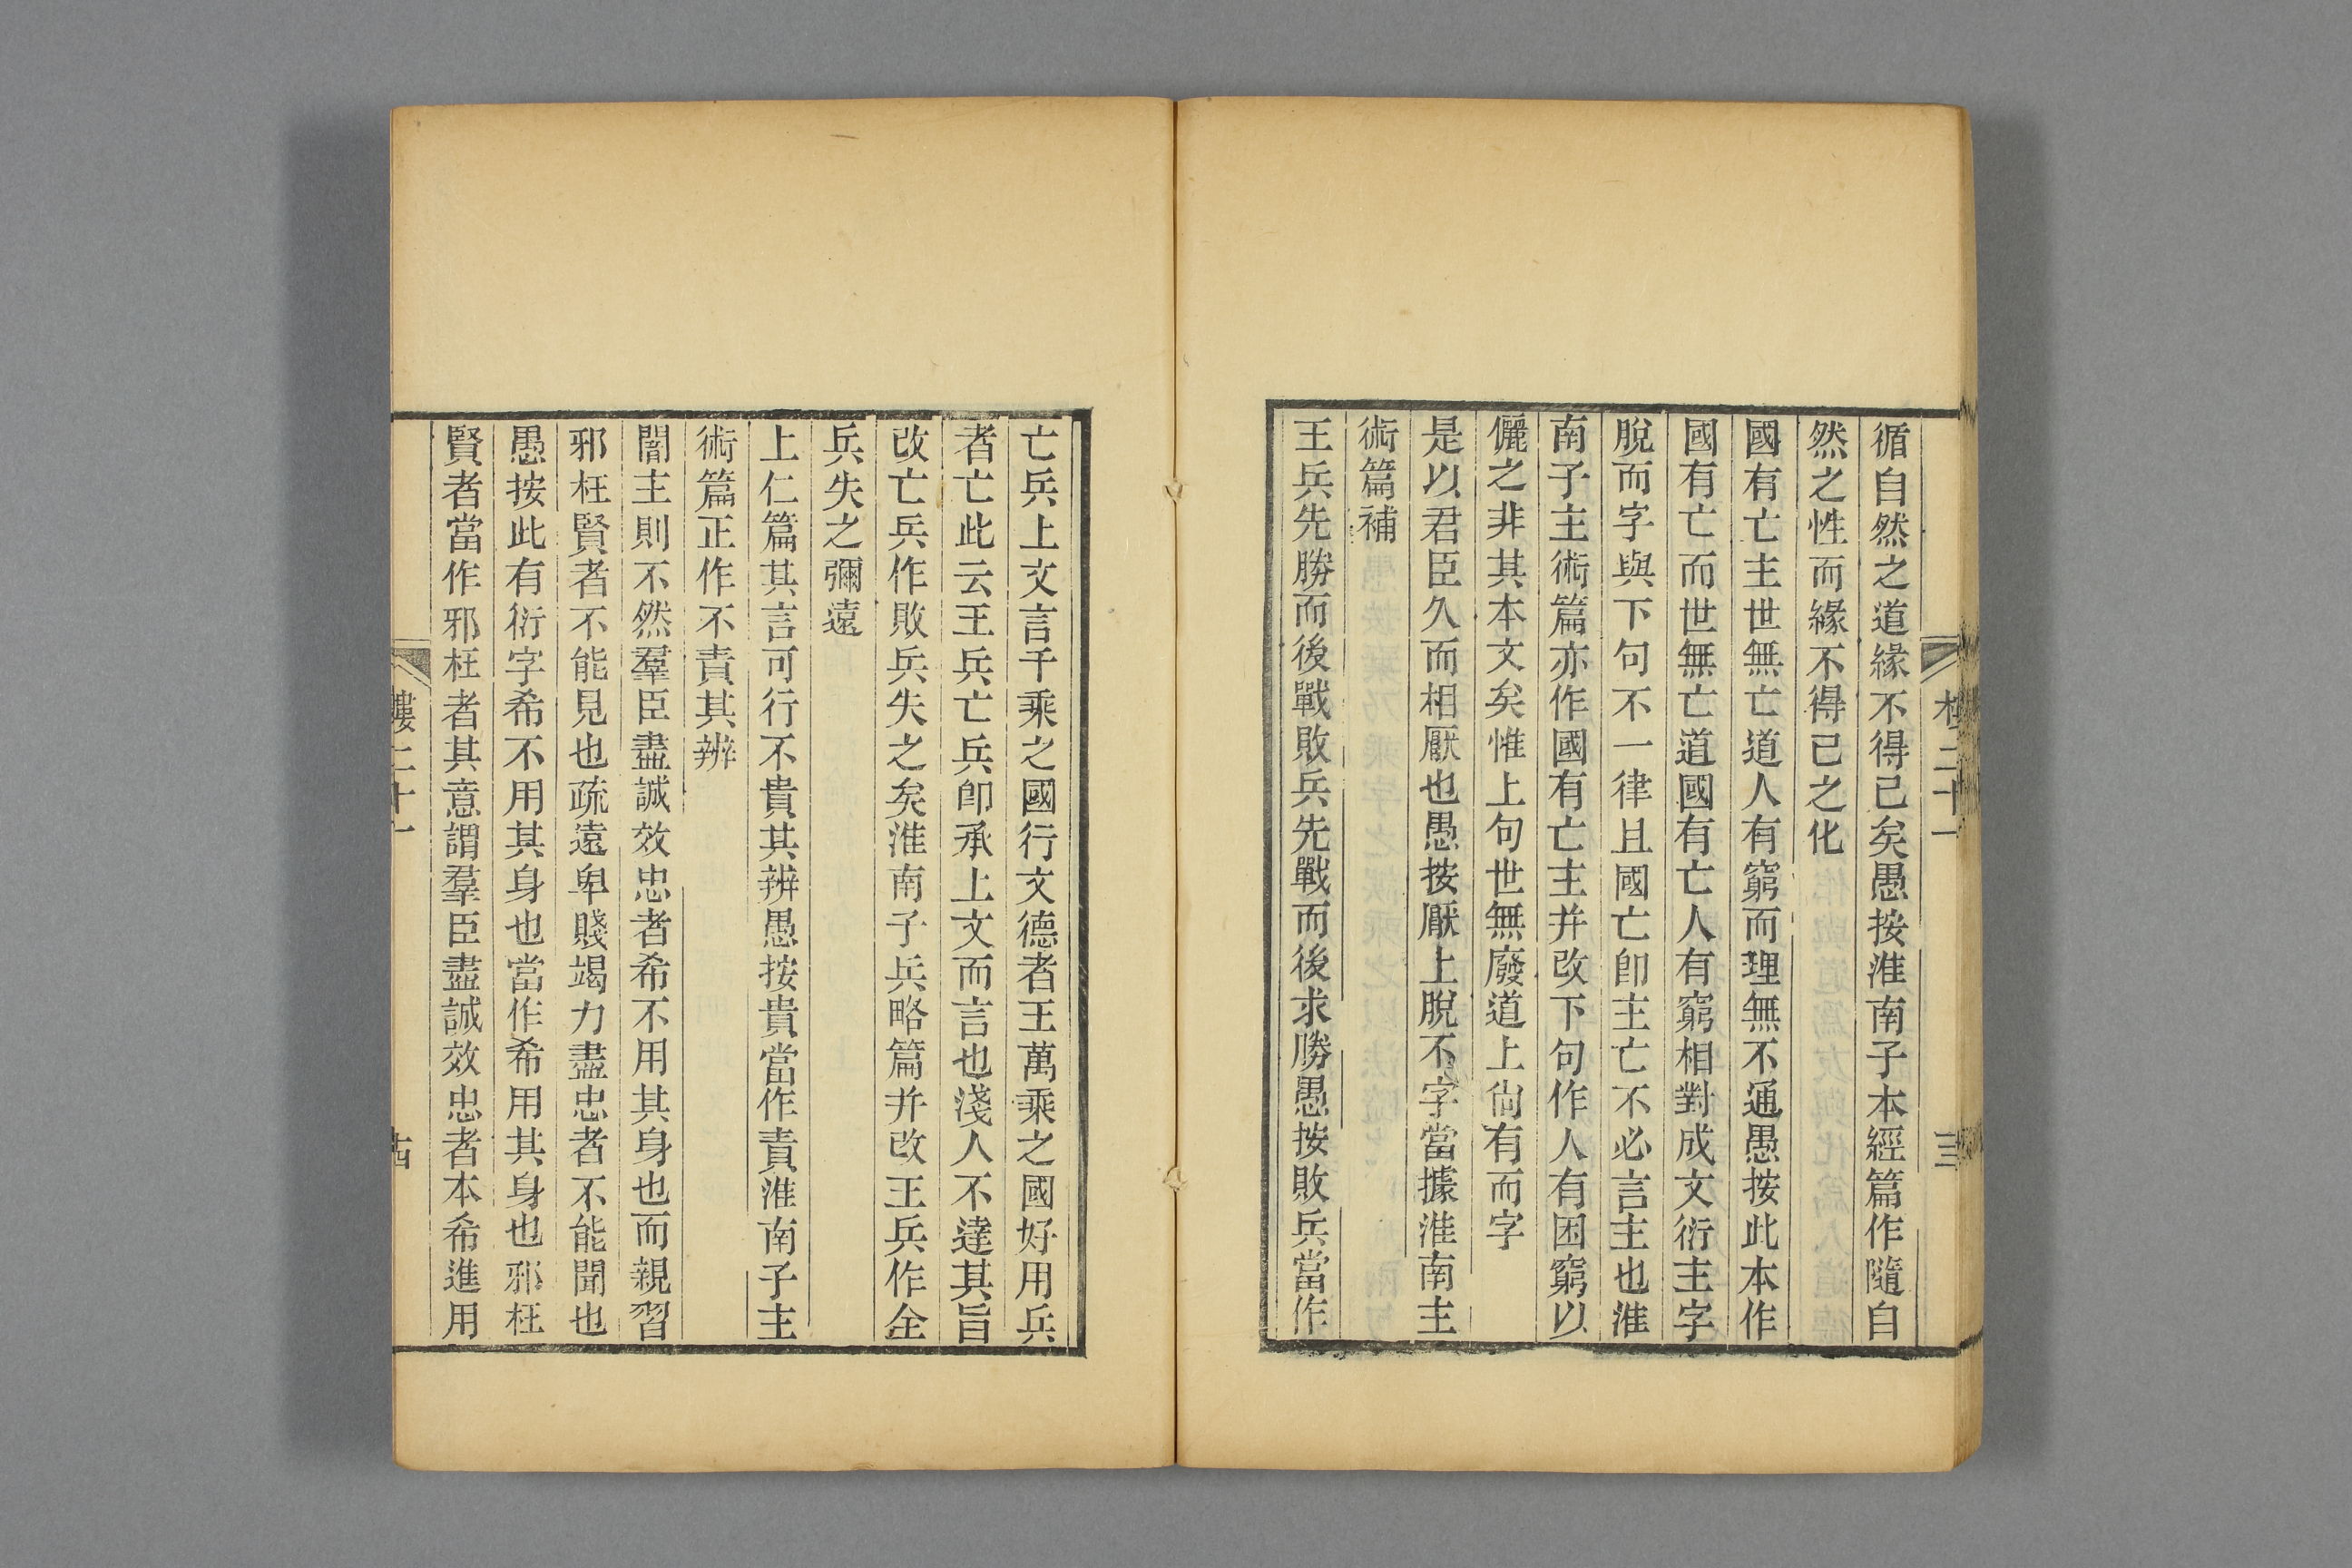 循自然之道緣不得已矣愚按淮南子本經篇作隨自
然之性而緣不得已之化
國有亡主世無亡道人有窮而理無不通愚按此本作
國有亡而世無亡道國有亡人有窮相對成文衍主字
脫而字與下句不一律且國亡卽主亡不必言主也淮
南子主術篇亦作國有亡主并改下句作人有困窮以
儷之非其本文矣惟上句世無廢道上尙有而字
是以君臣久而相厭也愚按厭上脫不字當據淮南主
術篇補
王兵先勝而後戰敗兵先戰而後求勝愚按敗兵當作
亡兵上文言千乘之國行文德者王萬乘之國好用兵
者亡此云王兵亡兵卽承上文而言也淺人不達其旨
改亡兵作敗兵失之矣淮南子兵略篇并改王兵作全
兵失之彌遠
上仁篇其言可行不貴其辨愚按貴當作責淮南子主
術篇正作不責其辨
闇主則不然羣臣盡誠效忠者希不用其身也而親習
邪枉賢者不能見也疏遠卑賤竭力盡忠者不能聞也
愚按此有衍字希不用其身也當作希用其身也邪枉
賢者當作邪枉者其意謂羣臣盡誠效忠者本希進用